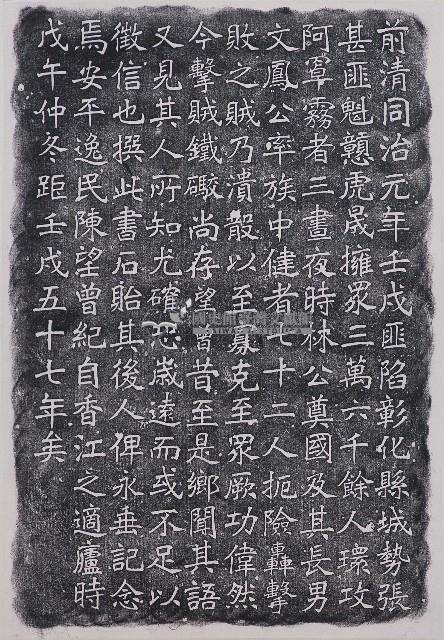 前清同治元年壬戌匪陷彰化縣城勢張
甚匪魁戇虎晟擁眾三萬六千餘人環攻
阿罩霧者三晝夜時林公奠國及其長男
文鳳公率族中健者七十二人扼險轟擊
敗之賊乃潰散以至寡克至眾厥功偉然
今擊賊鐵礮尚存望曾昔至是鄉聞其語
又見其人所知尤確恐歲遠而或不足以
徵信也撰此書石貽其後人俾永垂記念
焉安平逸民陳望曾紀自香江之適廬時
戊午仲冬距壬戌五十七年矣